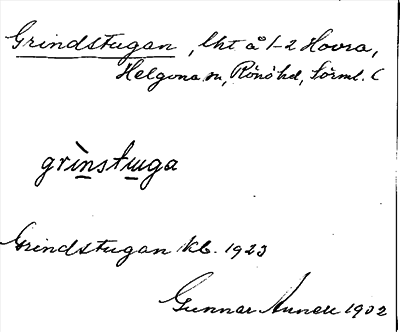 Grindstugan, lht å 1-2 Hovra,
Helgona sn, Rönö hd, Sörml. C
grìnstuga
Grindstugan Kb. 1923
Gunnar 1932